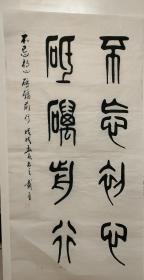 不忘初心
砥礪前行
不忘初心砥礪前行 戊戌